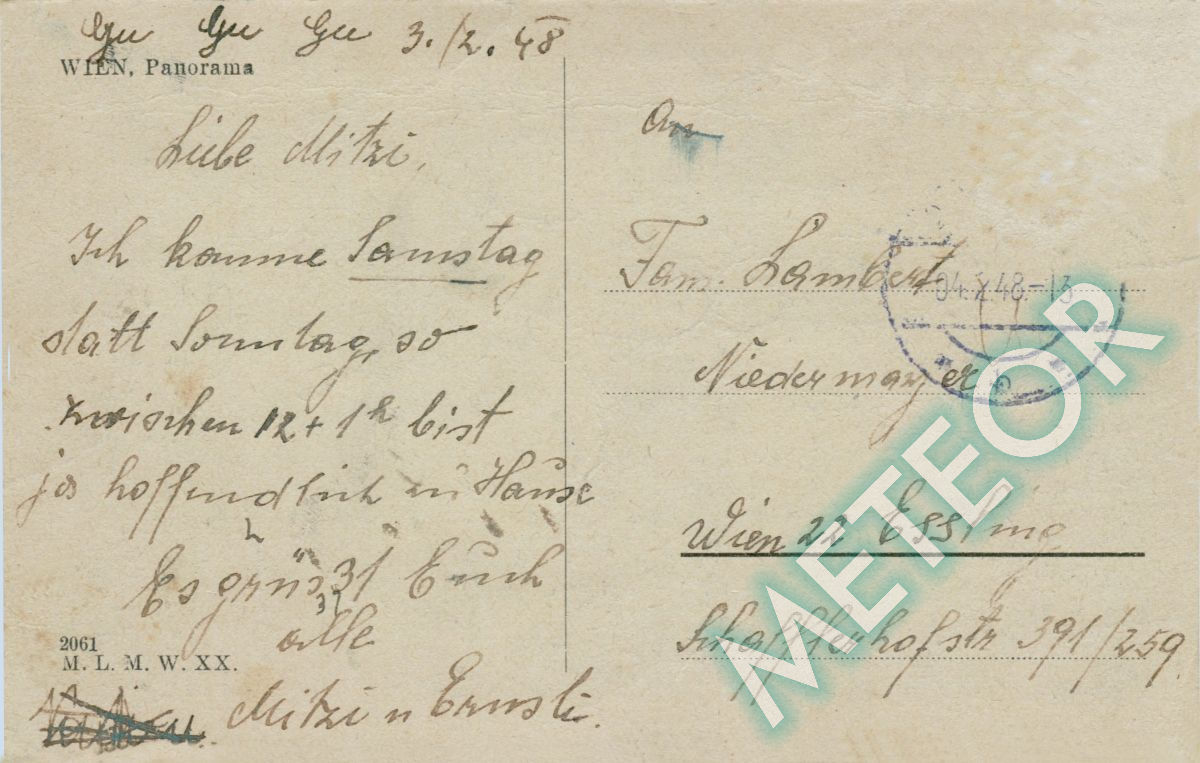 Gu Gu Gu 3./2. 48
WIEN, Panorama
Liebe Mitzi,
Ich komme Samstag
statt Sonntag, so
zwischen 12 + 1h bist
ja hoffendlich zu Hause
Es grüsst Euch
alle
2061
M. L. M. W. XX.
Mitzi u Ernsti.
An
Fam. Lambert
04. X. 48.-13
Niedermayer
Wien 22 Essling
Schafflerhofstr 391/259
METEOR